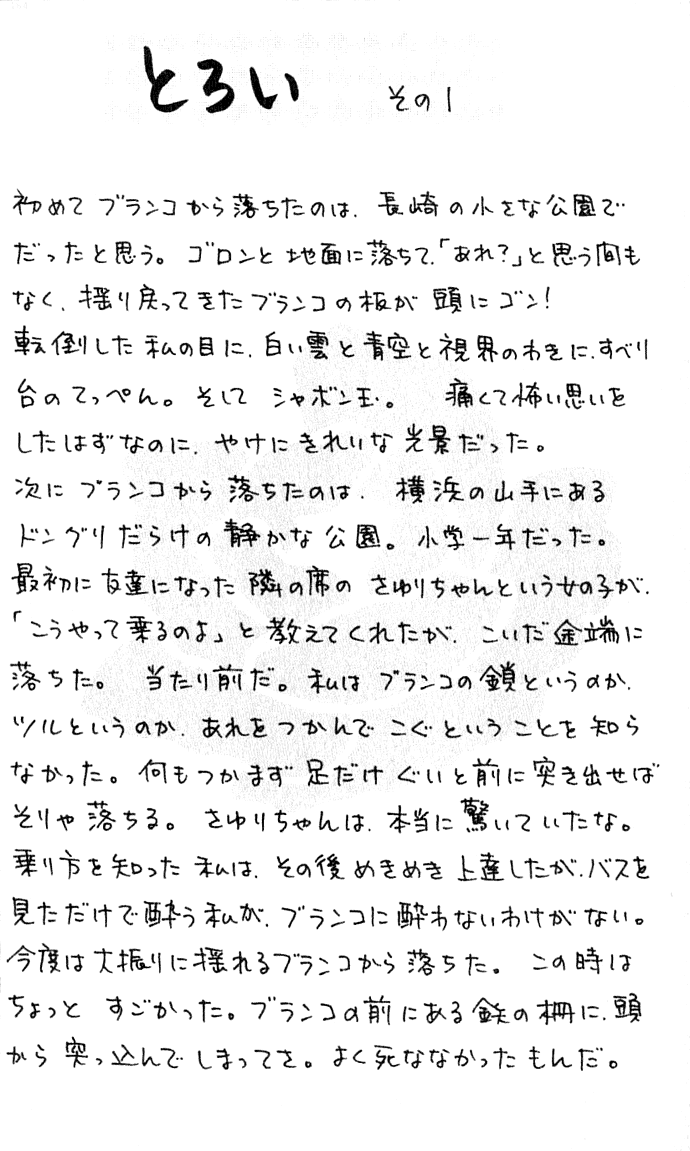 とろい その1
初めて ブランコから落ちたのは、長崎の小さな公園で
だったと思う。ゴロンと地面に落ちて、「あれ?」と思う間も
なく、揺り戻ってきたブランコの板が頭にゴン!
転倒した私の目に、白い雲と青空と視界のわきに、すべり
台のてっぺん。そして シャボン玉。 痛くて怖い思いを
したはずなのに、やけにきれいな光景だった。
次に ブランコから落ちたのは、横浜の山手にある
ドングリだらけの静かな公園。小学一年だった。
最初に友達になった隣の席の さゆりちゃんという女の子が、
「こうやって乗るのよ」と教えてくれたが、こいだ途端に
落ちた。 当たり前だ。私は ブランコの鎖というのか、
ツルというのか、あれをつかんで こぐということを知ら
なかった。何もつかまず足だけ ぐいと前に突き出せば
そりゃ落ちる。さゆりちゃんは、本当に驚いていたな。
乗り方を知った私は、その後めきめき上達したが、バスを
見ただけで酔う私が、ブランコに酔わないわけがない。
今度は大振りに揺れるブランコから落ちた。 この時は
ちょっと すごかった。ブランコの前にある鉄の柵に、頭
から突っ込んで しまってさ。よく死ななかったもんだ。